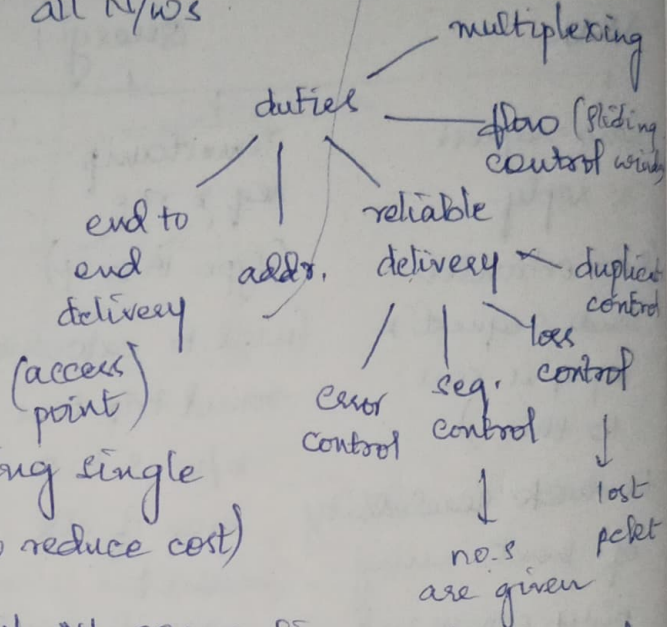 all N/Ws
multiplexing
duties
flow (sliding
control window
end to
end
delivery
(access
point)
addr.
reliable
delivery
duplicate
control
error
control
seq.
control
loss
control
no.s
are given
lost
pcket
ng single
reduce cost)